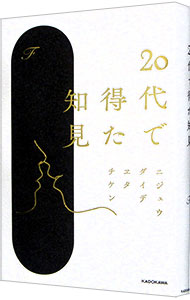 20代で
得た
知見
F
ニジュウ
ダイデ
エタ
チケン
KADOKAWA
20代で得た知見
F